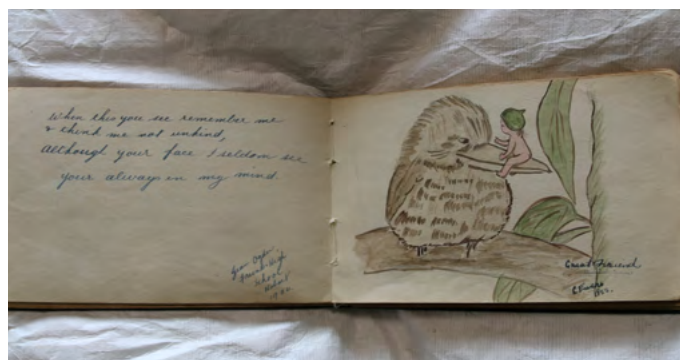 When this you see remember me
& think me not unkind,
although your face I seldom see
your always in my mind.
School
Great Friends